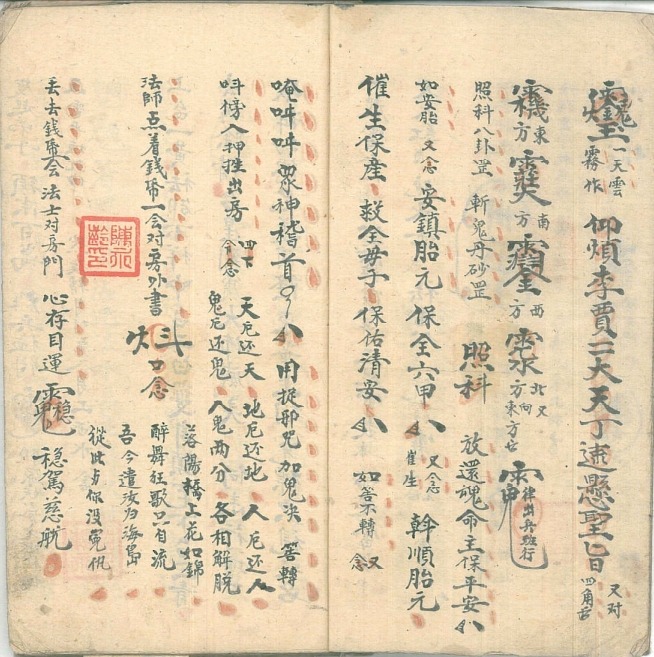 一天雲霧作 仰煩李賈二大天丁速懸聖旨 又对四角書
東方 南方 西方 北方 又向東方書
照科八卦罡 斬鬼丹砂罡 照科 放還魂命主保平安
如安胎 又念 安鎮胎元 保全六甲 又念催生 斡順胎元
催生保產 救全母子 保佑清安 如筶不轉 又念
唵吽吽眾神稽首 用捉邪咒 加鬼決 筶轉
吽傍入押甡出房 四下令念 天厄还天 地厄还地 人厄还人
鬼厄还鬼 人鬼两分 各相解脱
法師点着錢帋一会对房外書 力念 洛陽橋上花如錦
醉舞狂歌只自流
吾今遣汝归海島
從此与你没冤仇
丢去錢帋会 法士对房門 心存目運 稳駕慈航